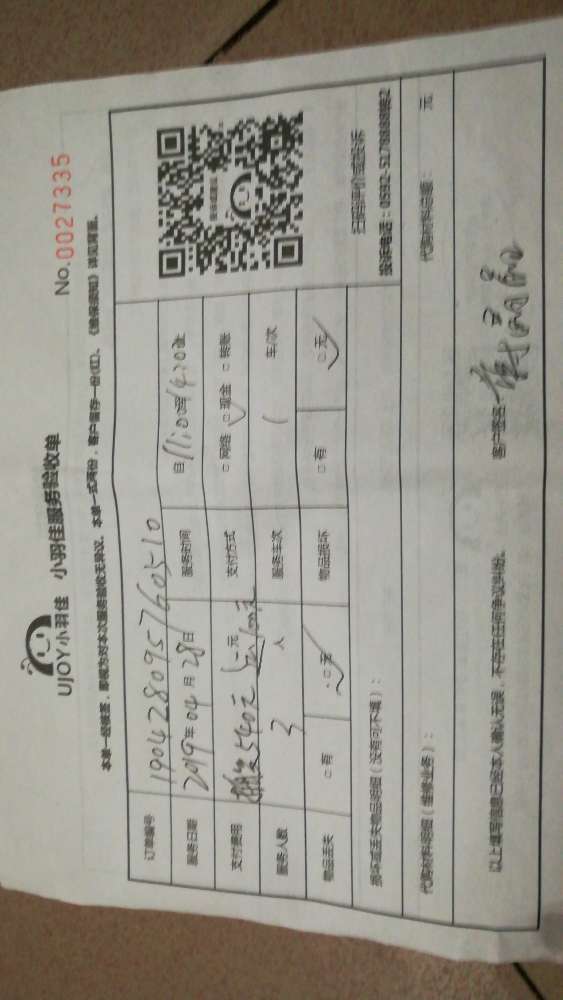 UJOY小羽佳 小羽佳服务验收单
No.0027335
本单一经核签，即视为对本次服务验收无异议。本单一式两份，客户留存一份(红)。《维保须知》详见背面。
订单编号 190428095760510
服务日期 2019年04月28日 服务时间 自11:00至14:20止
支付费用 540元 元 支付方式 □网络 □现金 □转账
服务人数 3人 服务车次 1 车/次
物品丢失 □有 □无 物品损坏 □有 □无
扫码评价或投诉
投诉电话：0592-5178888转2
损坏或丢失物品明细（没有可不填）：
代购材料明细（维修业务）： 代购材料总额： 元
以上填写信息已经本人确认无误，不存在任何争议纠纷。 客户签名